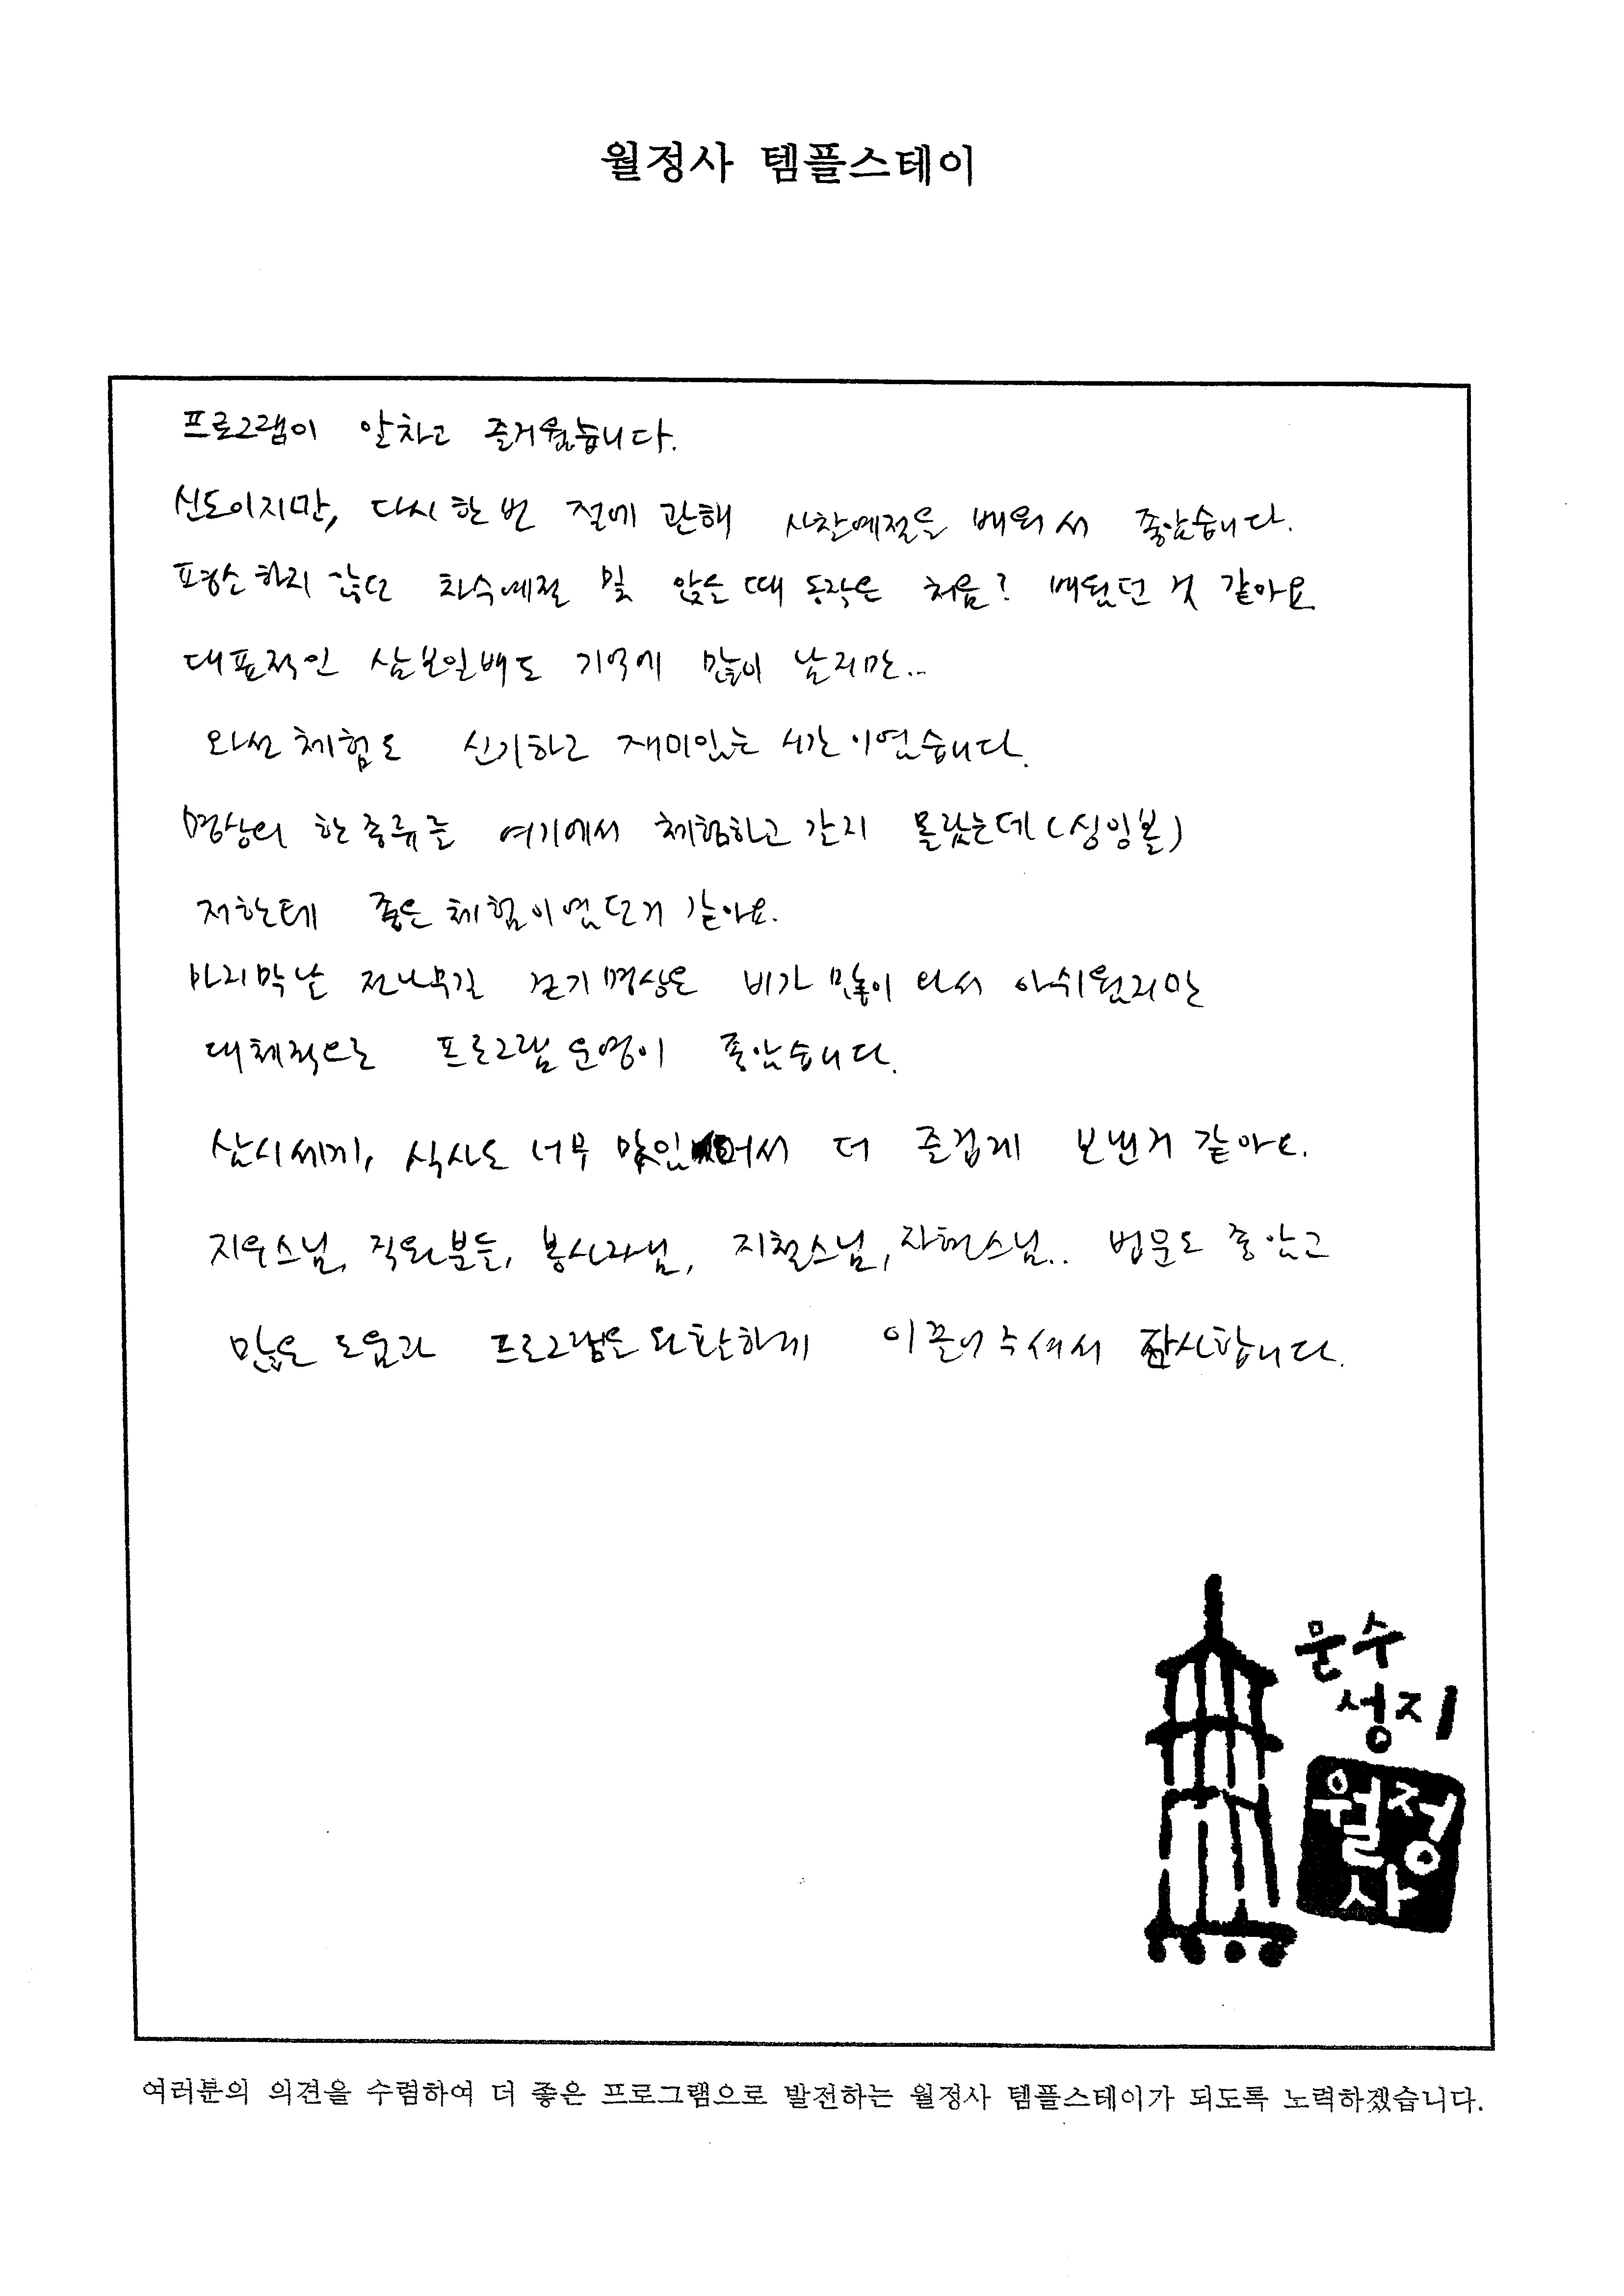 월정사 템플스테이
프로그램이 알차고 즐거웠습니다.
신도이지만, 다시 한 번 절에 관해 사찰예절을 배워서 좋았습니다.
평소 하지 않던 차수예절 및 앉을 때 동작은 처음? 배웠던 것 같아요
대표적인 삼보일배도 기억에 많이 남지만..
와선 체험도 신기하고 재미있는 시간이였습니다.
명상의 한 종류를 여기에서 체험하고 갈지 몰랐는데(싱잉볼)
저한테 좋은 체험이였던거 같아요.
마지막날 전나무길 걷기명상은 비가 많이 와서 아쉬웠지만
대체적으로 프로그램 운영이 좋았습니다.
삼시세끼, 식사도 너무 맛있어서 더 즐겁게 보낸거 같아요.
지우스님, 직원분들, 봉사자님, 지철스님, 자현스님.. 법문도 좋았고
많은 도움과 프로그램을 원활하게 이끌어주셔서 감사합니다.
문수
성지
월정
사
여러분의 의견을 수렴하여 더 좋은 프로그램으로 발전하는 월정사 템플스테이가 되도록 노력하겠습니다.